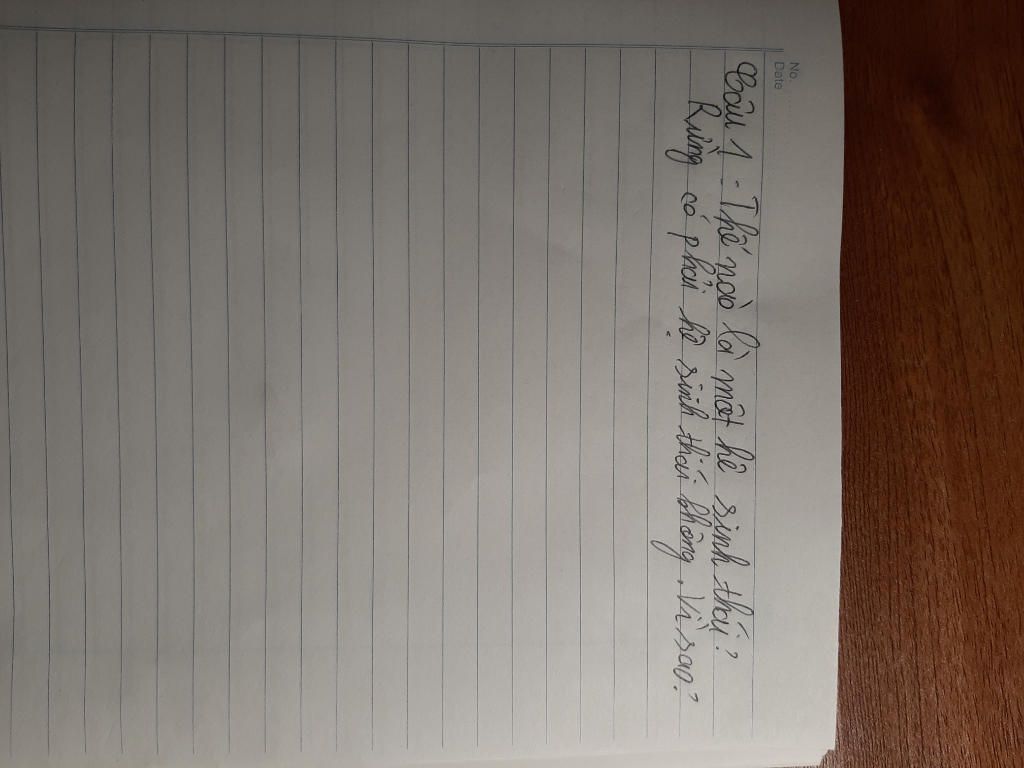 No.
Date
Câu 1 : Thế nào là một hệ sinh thái?
Rừng có phải hệ sinh thái không. Vì sao?